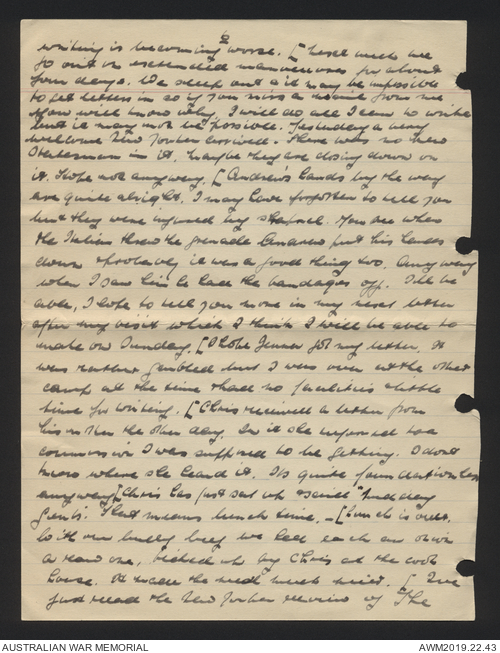 6
writing is becoming worse. [Next week we
go out on extended manoeuvres for about
four days. We sleep out & it may be impossible
to get letters in so if you miss a mail from me
you will know why. I will do all I can to write
but it may not be possible. Yesterday a very
welcome New Yorker arrived. There was no New
Statesman in it. Maybe they are closing down on
it. I hope not anyway. [Andrew's hands by the way
are quite alright. I may have forgotten to tell you
but they were injured by shrapnel. You see when
the Italian threw the grenade Andrew put his hands
down & probably it was a good thing too. Anyway
when I saw him he had the bandages off. I'll be
able, I hope to tell you more in my next letter
after my visit which I think I will be able to
make on Sunday. [I hope Jenner got my letter. It
was rather garbled but I was over at the other
camp at the time & had no facilities & little
time for writing. [Chris received a letter from
his mother the other day. In it she inferred to a
commission I was supposed to be getting. I don't
know where she heard it. Its quite foundationless
anyway. [Chris has just sat up & said "
gents". That means lunch time. - [Lunch is over.
With our bully beef we had each an onion
a raw one, picked up by Chris at the cook
house. It made the meal much nicer. [I've
just read the New Yorker review of The
AUSTRALIAN WAR MEMORIAL
AWM2019.22.43